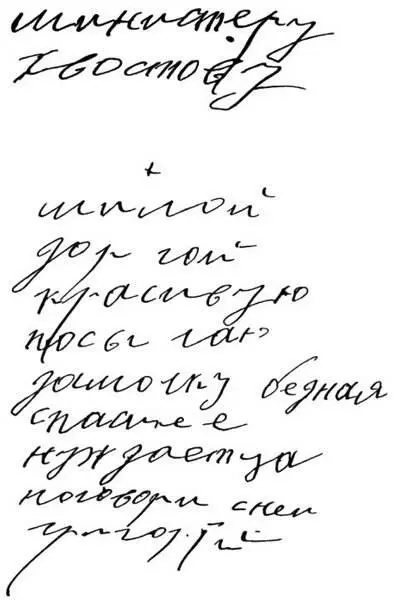 министеру
Хвостову
+
милой
дор гой
красивую
посы лаю
дамочку бедная
спаси ее
нуждаетца
поговори снеи
григорій